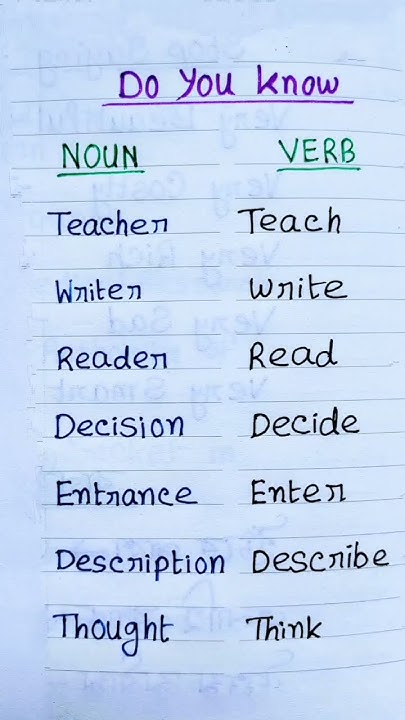 Do You know
NOUN VERB
Teacher Teach
Writer write
Reader Read
Decision Decide
Entrance Enter
Description Describe
Thought Think